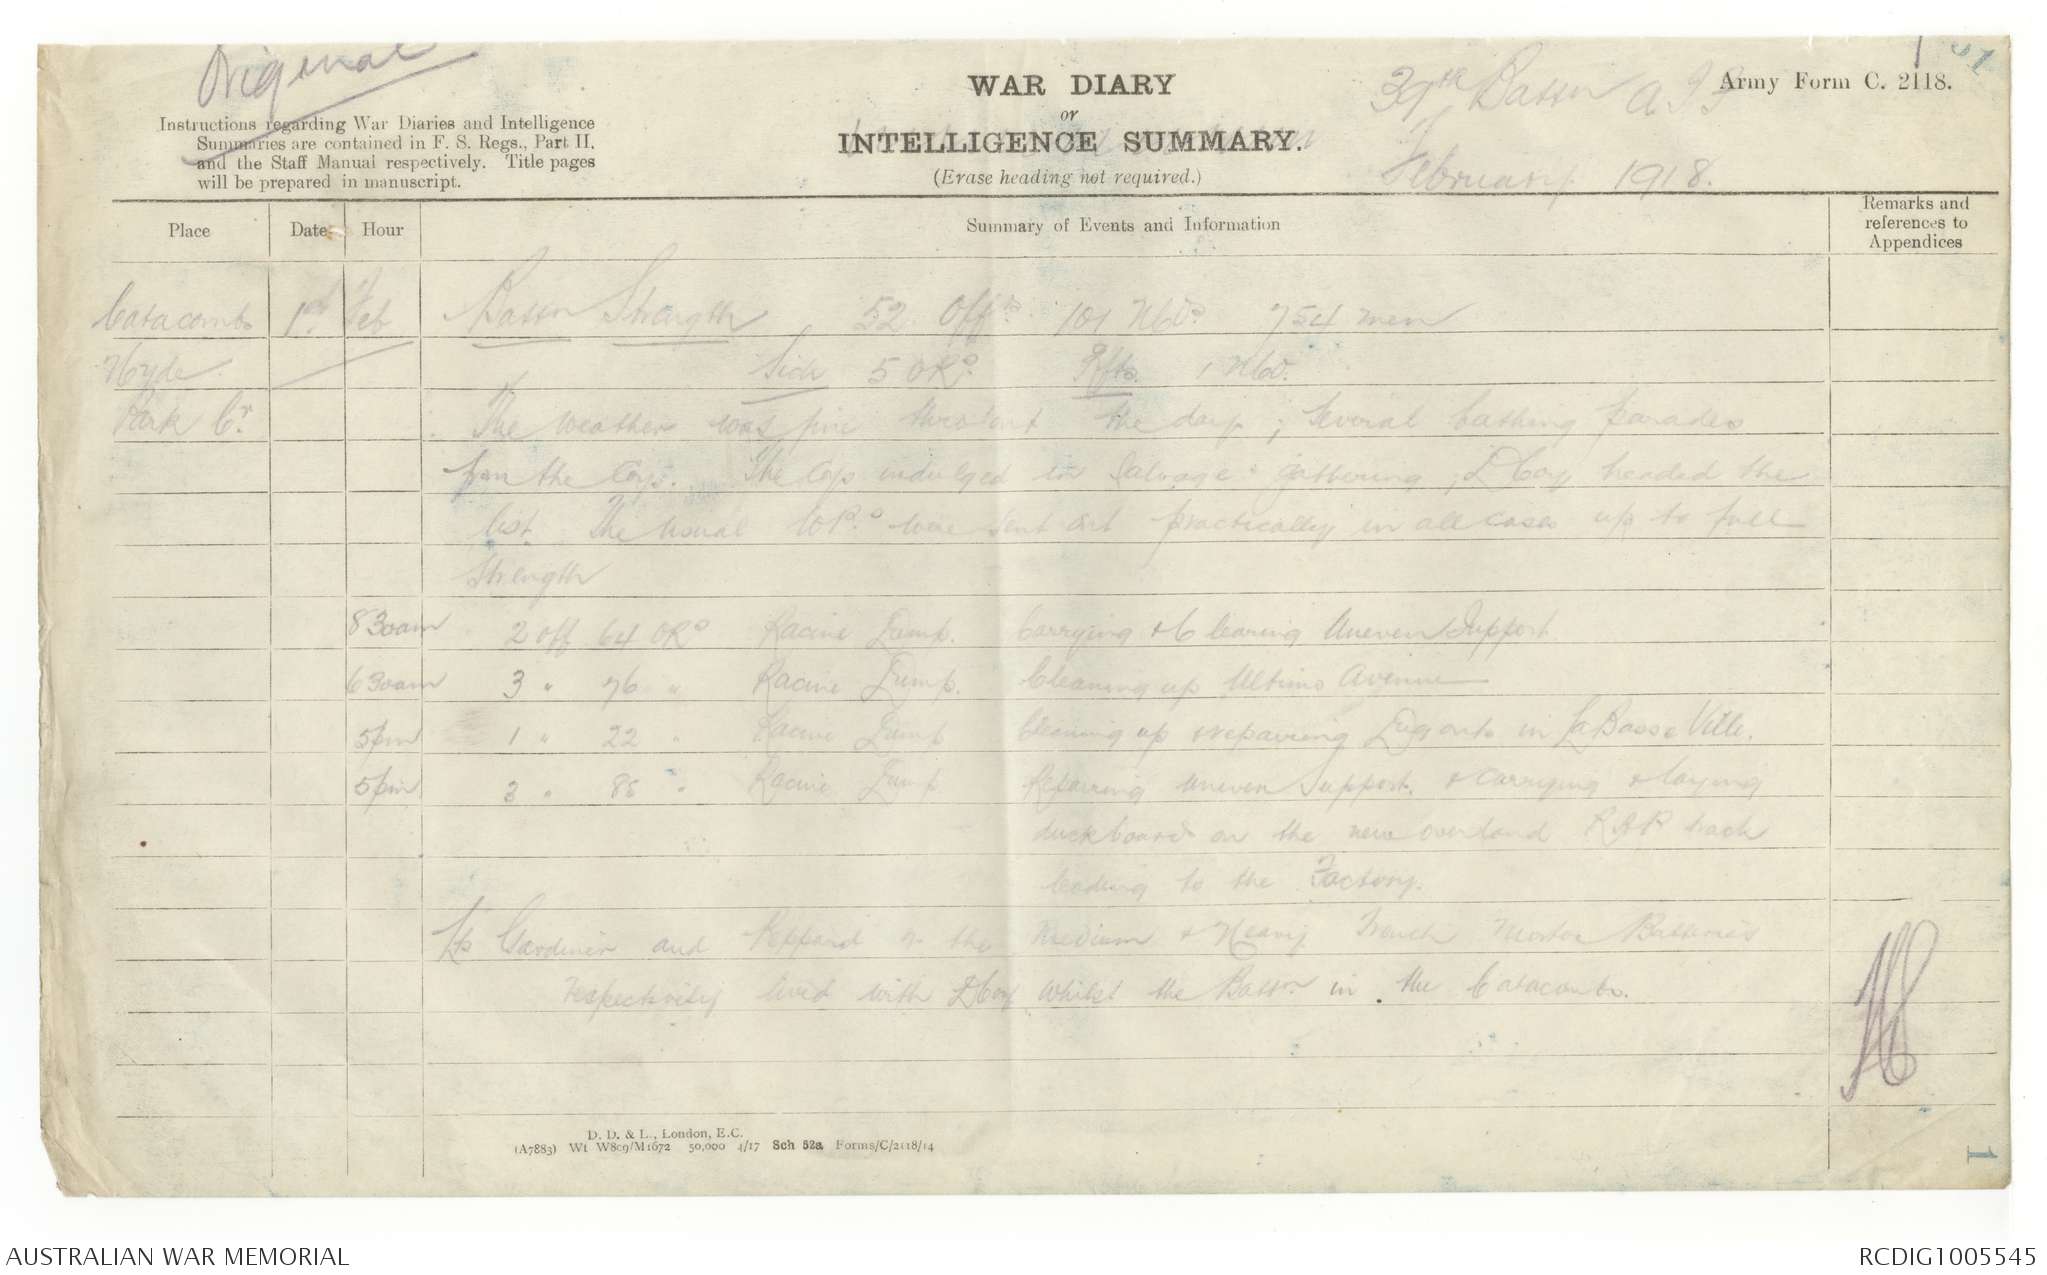 Original
Instructions regarding War Diaries and Intelligence
Summaries are contained in F. S. Regs., Part II.
and the Staff Manual respectively. Title pages
will be prepared in manuscript.
WAR DIARY
or
INTELLIGENCE SUMMARY.
(Erase heading not required.)
39th Battn A I F
February 1918.
Army Form C. 2118.
Place
Date
Hour
Summary of Events and Information
Remarks and
references to
Appendices
Catacombs 1st Feb Battn Strength 52 Offrs 101 NCOs 754 men
Hyde Sick 5 ORs Rfts. 1 NCO.
Park Cr. The weather was fine thro'out the day; Several bathing parades
from the Coys. The Coys indulged in salvage gathering, D Coy headed the
list. The usual WPs were sent out practically in all cases up to full
strength
8 30am 2 off 64 ORs Racine Dump. Carrying & Cleaning Uneven Support
6 30am 3 " 76 " Racine Dump. Cleaning up Ultimo Avenue
5pm 1 " 22 " Racine Dump Cleaning up & repairing Dugouts in La Basse Ville.
5pm 3 " 85 " Racine Dump Repairing Uneven Support. & carrying & laying
duckboards on the new overland RAP track
leading to the Factory.
Lts Gardiner and Peppard of the Medium & Heavy Trench Mortar Batteries
respectively lived with D Coy whilst the Battn in the Catacombs.
D. D. & L., London, E.C.
(A7883) Wt W809/M1672 50,000 4/17 Sch 52a Forms/C/2118/14
1
AUSTRALIAN WAR MEMORIAL
RCDIG1005545